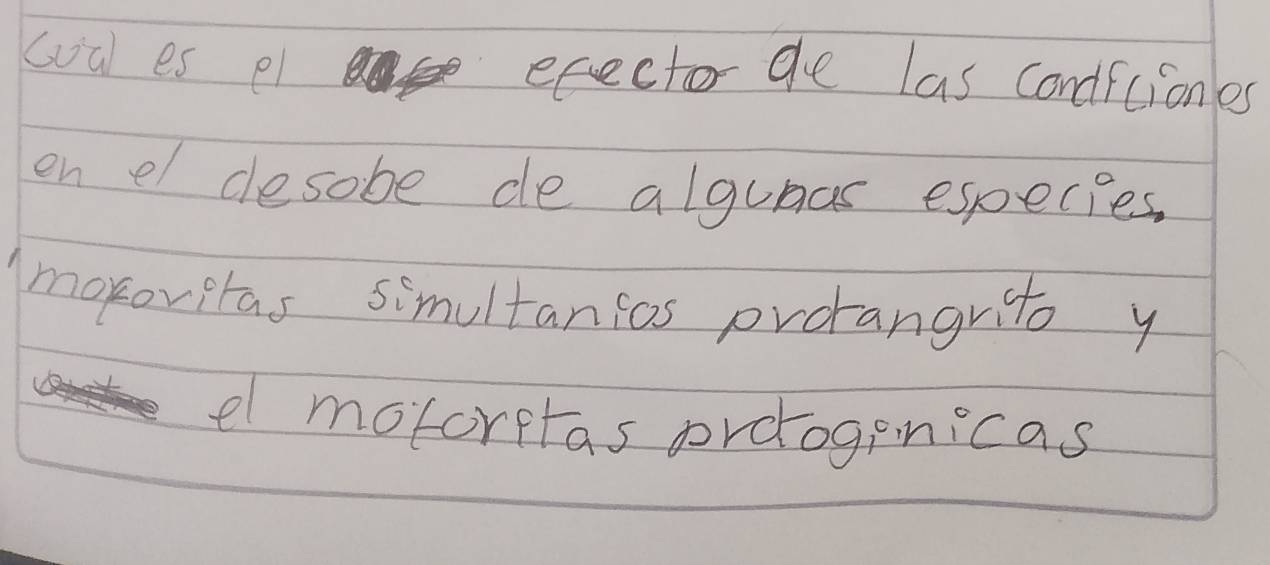 Cual es el efecto de las condiciones
en el desobe de algunas especies.
mofovitas simultanios protangrito y
el motoritas protoginicas